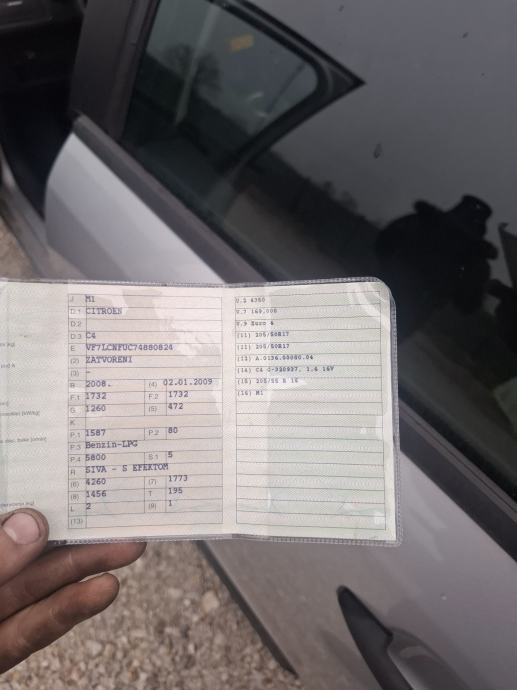 J M1
D.1 CITROEN
D.2
D.3 C4
E VF7LCNFUC74880824
(2) ZATVORENI
(3) -
B 2008. (4) 02.01.2009
F.1 1732 F.2 1732
G 1260 (5) 472
K
P.1 1587 P.2 80
P.3 Benzin-LPG
P.4 5800 S.1 5
R SIVA - S EFEKTOM
(6) 4260 (7) 1773
(8) 1456 T 195
L 2 (9) 1
(13)
U.2 4350
V.7 169.000
V.9 Euro 4
(11) 205/50R17
(11) 205/50R17
(12) A.0136.00080.04
(14) C4 C-320937, 1.6 16V
(15) 205/55 R 16
(16) M1